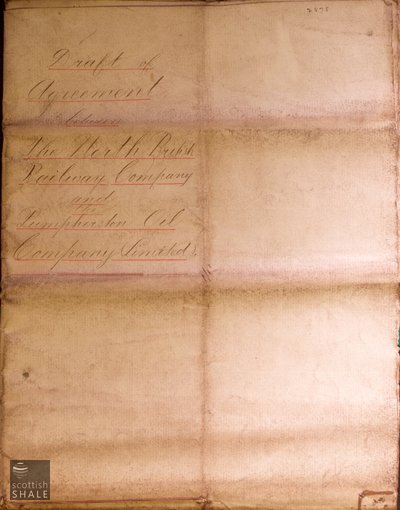 2575
Draft of
Agreement
between
The North British
Railway Company
and
The
Pumpherston Oil
Company Limited.
scottish
SHALE